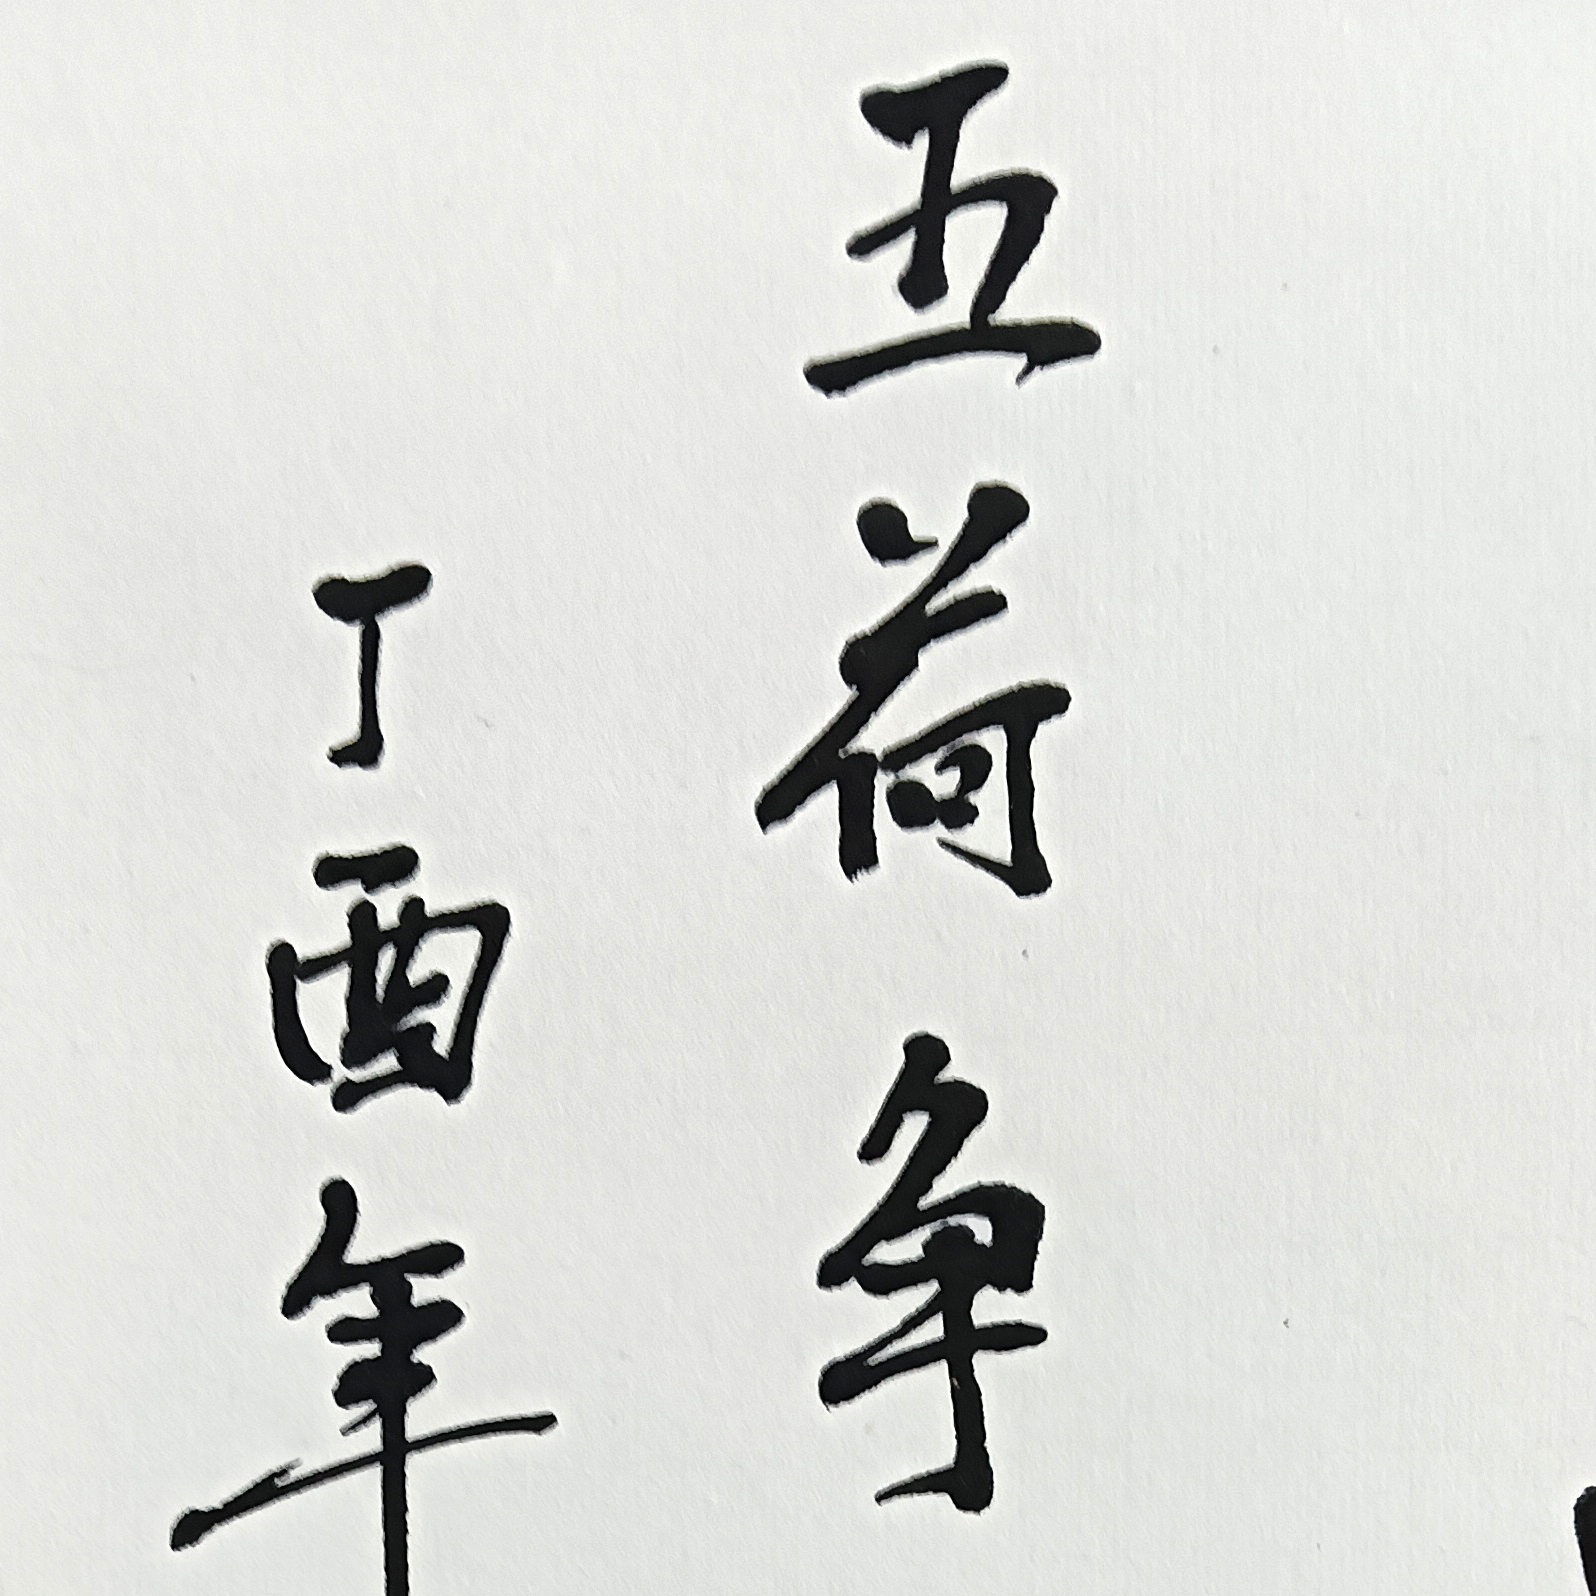 五荷争
丁酉年